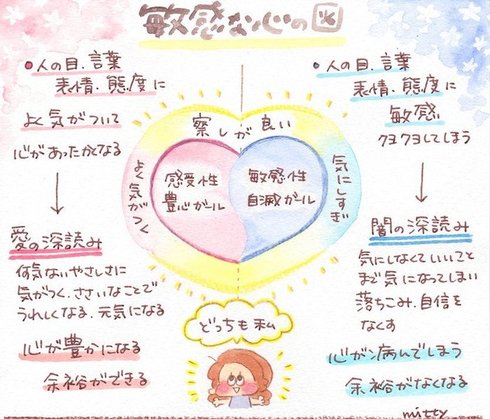 敏感な心の図
●人の目.言葉
表情.態度に
よく気がついて
心があったかくなる
愛の深読み
何気ないやさしさに
気がつく.ささいなことで
うれしくなる.元気になる
心が豊かになる
余裕ができる
察しが良い
よく気がつく
気にしすぎ
感受性
豊心ガール
敏感性
自滅ガール
どっちも私
●人の目.言葉
表情.態度に
敏感
クヨクヨしてしまう
闇の深読み
気にしなくていいこと
まで気になってしまい
落ちこみ.自信を
なくす
心が病んでしまう
余裕がなくなる
mitty